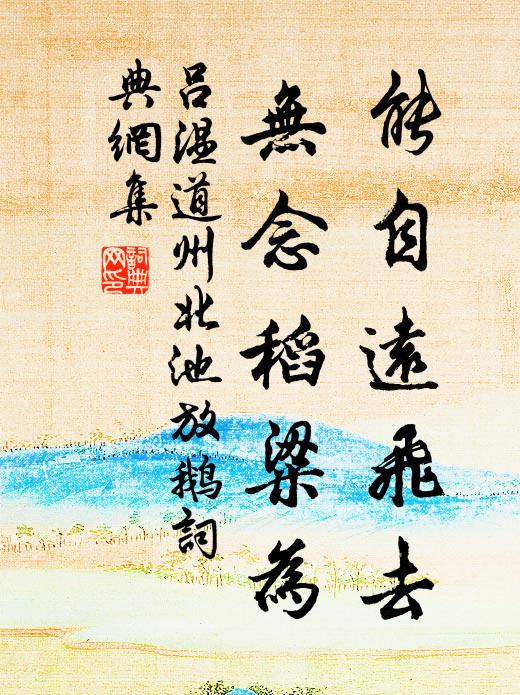 能自遠飛去
無念稻粱為
呂溫道州北池放鵝詞
典網集
詞典
网印